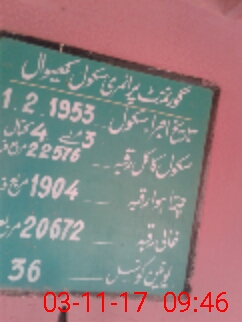 گورنمنٹ پرائمری سکول کھیوال
تاریخ اجراء سکول 1.2.1953
سکول کا کل رقبہ 3 مرلے 4 کنال 22576 مربع
چھتا ہوا رقبہ 1904 مربع
خالی رقبہ 20672 مربع
یونین کونسل 36
03-11-17 09:46